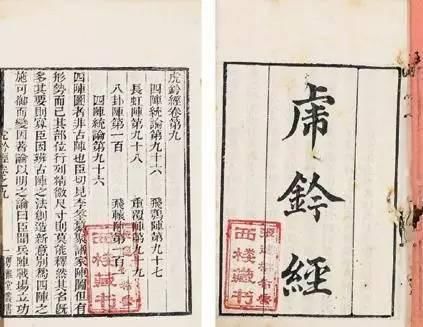 虎鈐經
虎鈐經卷第九
四陣統論第九十六 飛鶚陣第九十七
長虹陣第九十八 重覆陣第九十九
八卦陣第一百
四陣統論第九十六
四陣圖者非古陣也臣切見李筌纂諸家陣圖但有
形勢而已其部位行列微尺寸則莫能釋然其名既
多其要則寡臣因班古陣之法創造新意別為四陣之
施可御而變因著論以明之論曰臣聞兵陣戰場立功
虎鈐經卷之九 一 粵雅堂叢書